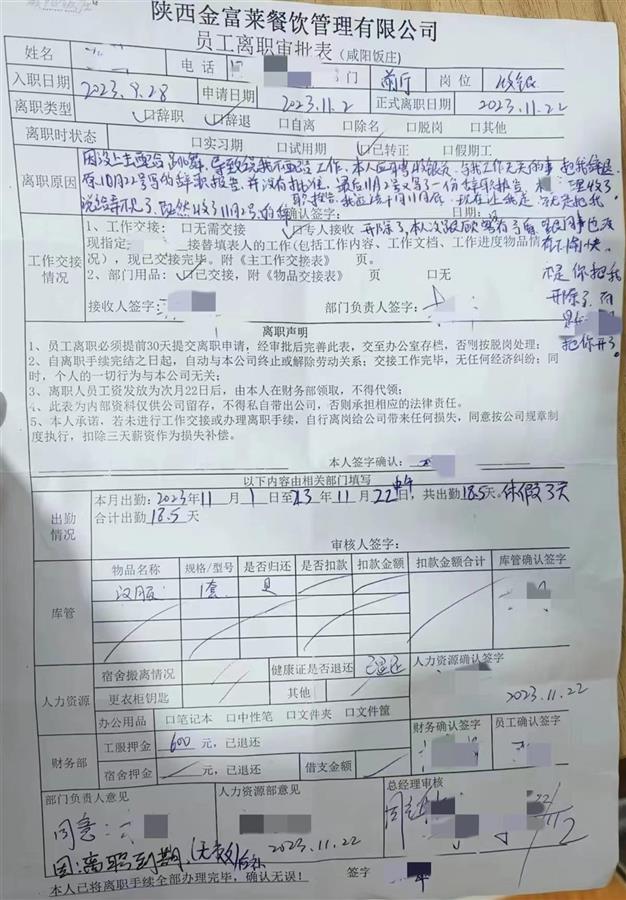 陕西金富莱餐饮管理有限公司
员工离职审批表（咸阳饭庄）
姓名 电话 部门 前厅 岗位 收银
入职日期 2023.9.28 申请日期 2023.11.2 正式离职日期 2023.11.22
离职类型 □辞职 □辞退 □自离 □除名 □脱岗 □其他
离职时状态 □实习期 □试用期 □已转正 □假期工
离职原因
因没上主 导致说我不配合工作、本人应聘为收银员、与我工作无关的事 把我辞退
原10月22号写的辞职报告、并没有批准、最后11月2号又写了一份辞职报告、 理收了
说给弄丢了、既然收了11月2号的辞职报告、我应该干到11月底、现在让我走、
确认签字： 日期：
工作交接情况
1、工作交接： □无需交接 □专人接收 开除了、本人没
现指定： 接替填表人的工作（包括工作内容、工作文档、工作进度物品情
况），现已交接完毕。附《主工作交接表》 页。
2、部门用品：□已交接，附《物品交接表》 页 □无
不是你把我
开除了、而
把你开了。
接收人签字： 部门负责人签字：
离职声明
1、员工离职必须提前30天提交离职申请，经审批后完善此表，交至办公室存档，否则按脱岗处理；
2、自离职手续完结之日起，自动与本公司终止或解除劳动关系；交接工作完毕，无任何经济纠纷；同
时，个人的一切行为与本公司无关；
3、离职人员工资发放为次月22日后，由本人在财务部领取，不得代领；
4、此表为内部资料仅供公司留存，不得私自带出公司，否则承担相应的法律责任。
5、本人承诺，若未进行工作交接或办理离职手续，自行离岗给公司带来任何损失，同意按公司规章制
度执行，扣除三天薪资作为损失补偿。
本人签字确认：
以下内容由相关部门填写
出勤情况
本月出勤：2023年11月1日至23年11月22中午日，共出勤18.5天。休假3天
合计出勤18.5天
审核人签字：
库管
物品名称 规格/型号 是否归还 是否扣款 扣款金额 扣款金额合计 库管确认签字
汉服 1套 是
人力资源
宿舍搬离情况 健康证是否退还 已退还 人力资源确认签字
更衣柜钥匙 其他 2023.11.22
办公用品 □笔记本 □中性笔 □文件夹 □文件筐
财务部
工服押金 600元，已退还 财务确认签字 员工确认签字
宿舍押金 元，已退还 借支金额
部门负责人意见 人力资源部意见 总经理审核
同意
2023.11.22
22/11
因：离职到期
签字
本人已将离职手续全部办理完毕，确认无误！